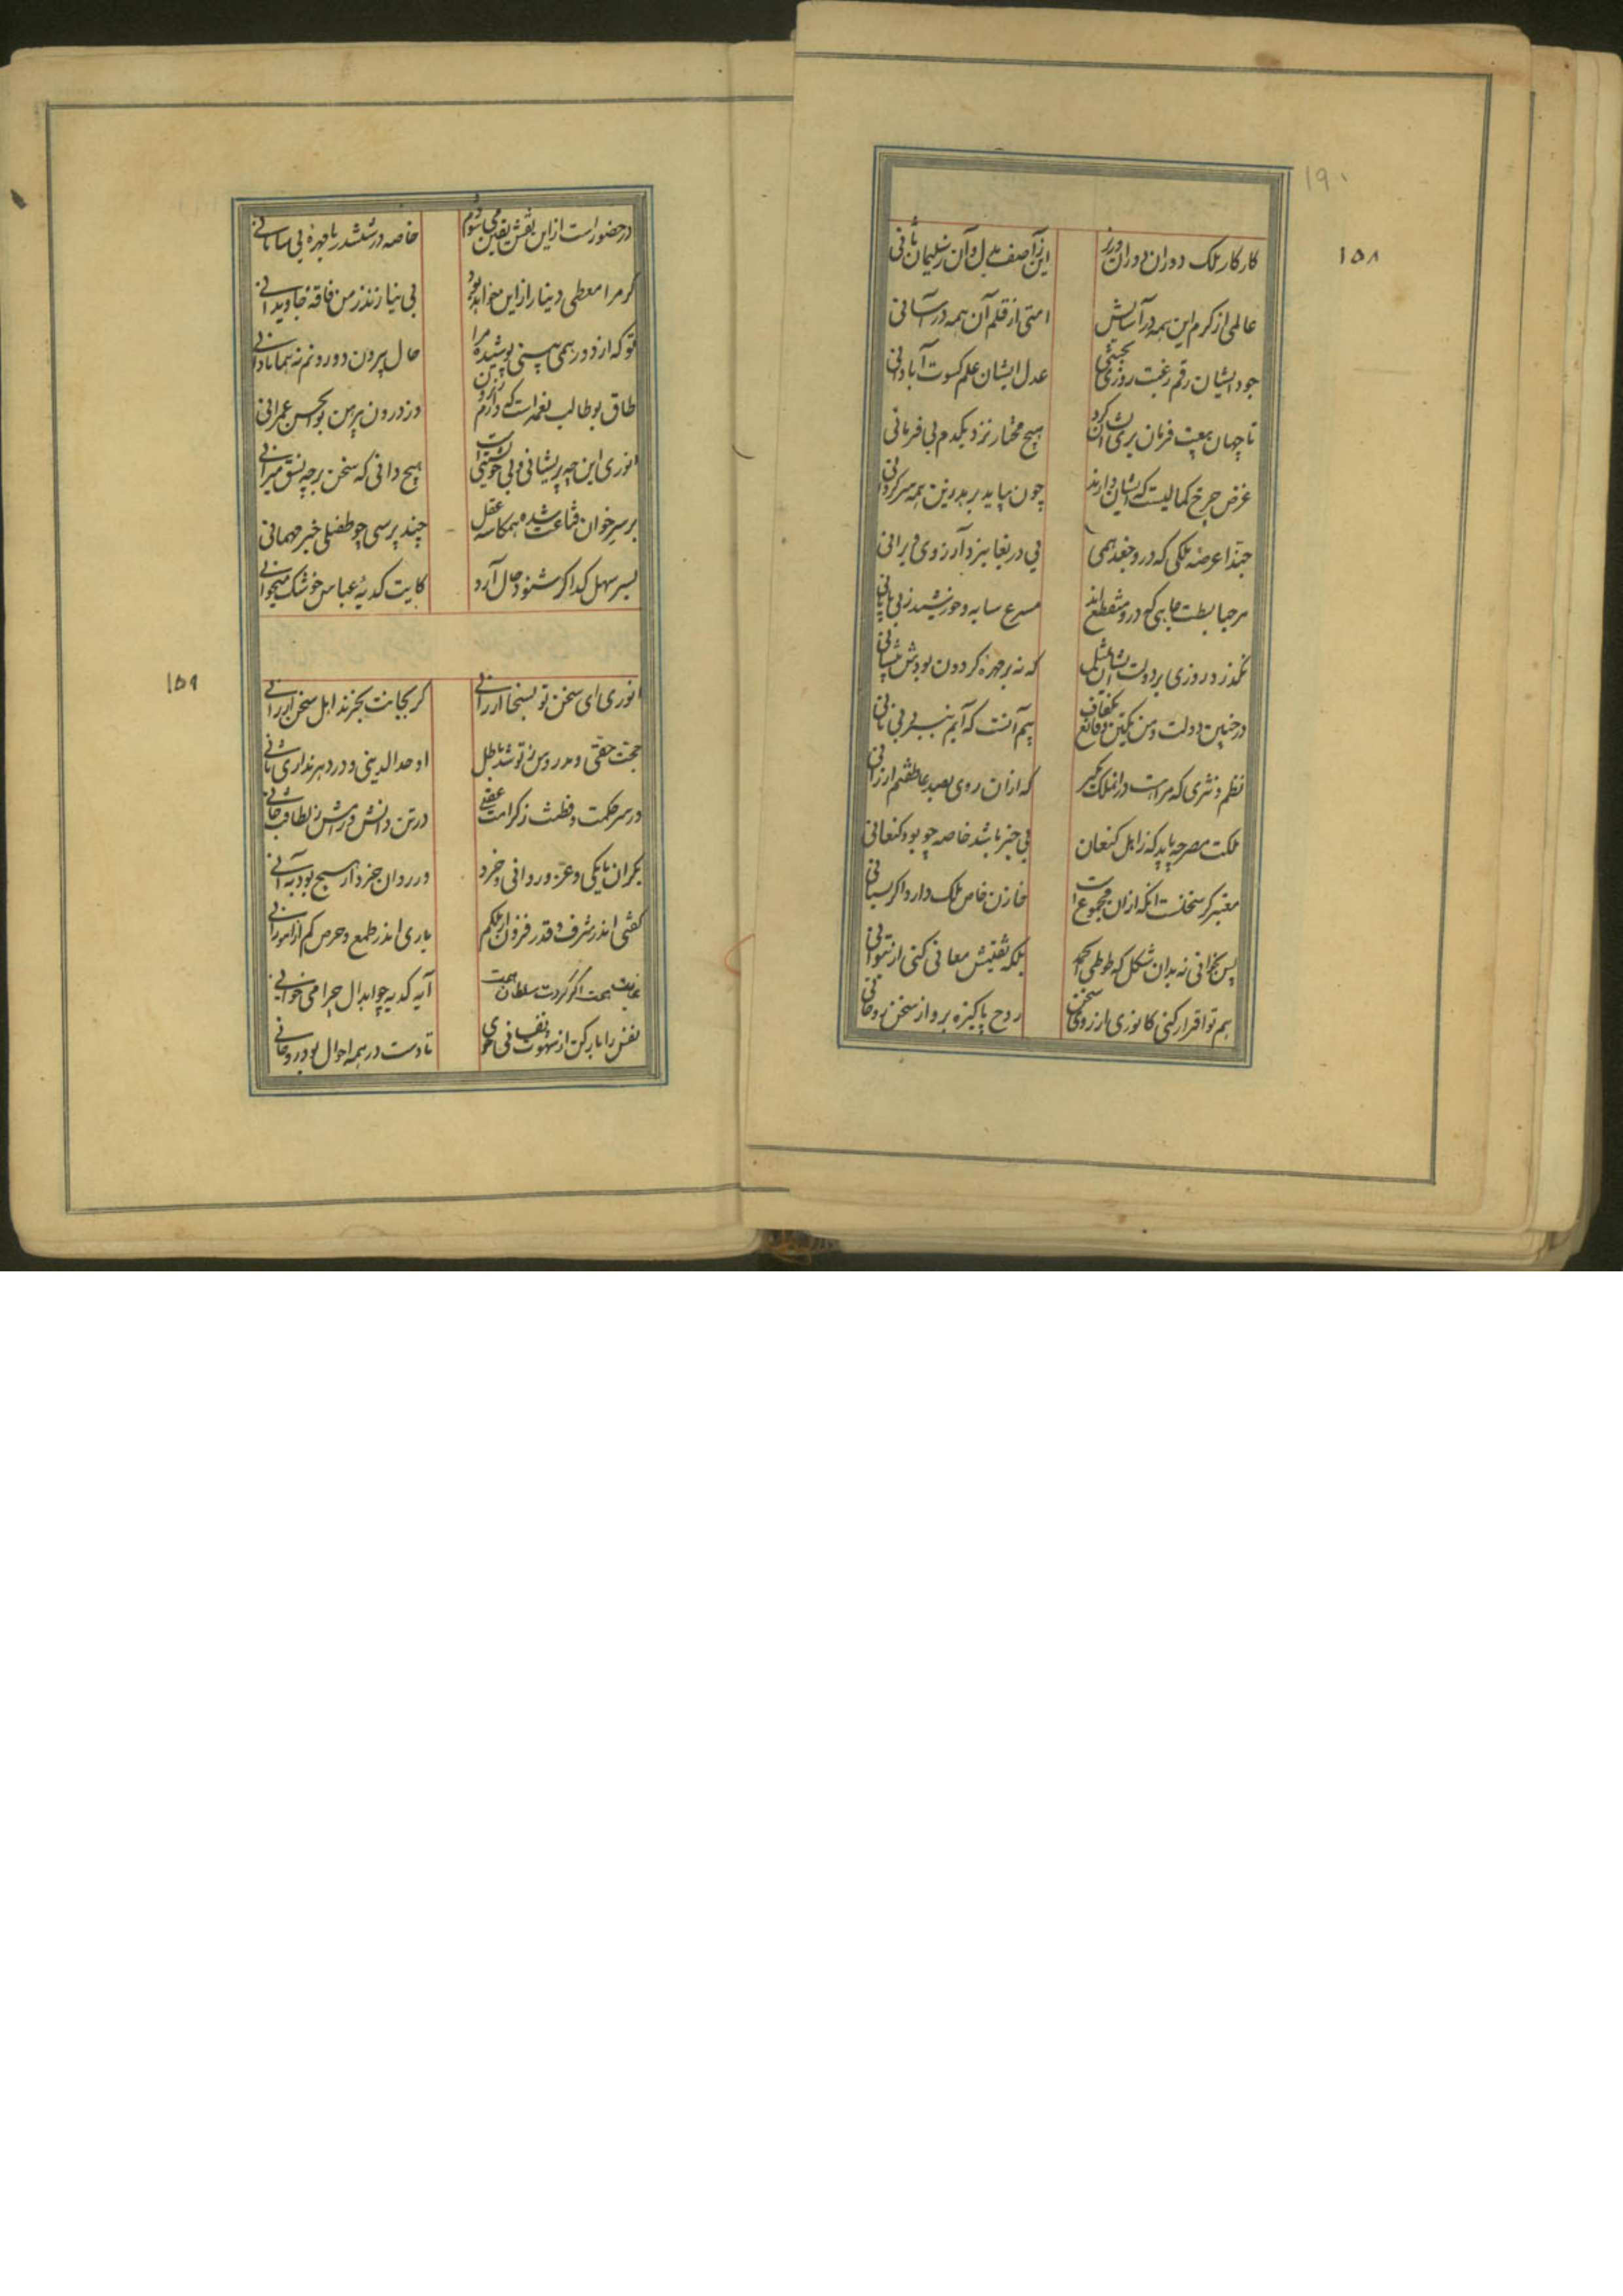 ۱۹۰
۱۵۸
کار کار ملک و دوران دوران وزیر
این ز آصف بدل و آن ز سلیمان ثانی
عالمی از کرم این همه در آسایش
امتی از قلم آن همه در آسانی
جود ایشان رقم رغبت روزی بخشی
عدل ایشان علم کسوت آبادانی
تا جهان بیعت فرمان بری ایشان کرد
هیچ مختار نزد یکدم بی فرمانی
غرض چرخ کمالیست که ایشان دارند
چون بپاید بر بدین همه سرگردانی
حبذا عرصه ملکی که درو جغد همی
پی دریغا نبرد آرزوی ویرانی
مرحبا بسطت جاهی که درو منقطع‌اند
مسرع سایه و خورشید ز بی پایانی
نگذرد روزی بر دولت ایشان بمثل
که نه بر چهره گردون بودش پیشانی
در چنین دولت و من یکتن و قانع بکفاف
بیم آنست که آبم ببرد بی نانی
نظم و نثری که مراهست در انملک مگیر
که از آن روی بصد عاطفتم ارزانی
ملکت مصر چه باید که ز اهل کنعان
بی خبر باشد خاصه چو بود کنعانی
معتبر گر سخنست آنکه از آن مجموعست
خازن خاص ملک دارد اگر بستانی
پس بخوانی نه بدان شکل که طوطی الحمد
بلکه تفتیش معانی کنی ار بتوانی
هم تو اقرار کنی کانوری از روی سخن
روح پاکیزه برد از سخن روحانی
در حضور است ازین نقش یقین می‌شودم
خاصه در ششدر با چهره بی سامانی
گر مرا معطی دینار ازین می‌خواهد بود
بی نیاز نزد من فاقه جاویدانی
تو که از دور همی بینی پوشیده مرا
حال بیرون و درونم نه همانا دانی
طاق بوطالب نعمه است که دارم ز برون
وز درون پیرهن بوالحسن عمرانی
انوری این چه پریشانی و بی خویشتنی است
هیچ دانی که سخن بر چه نسق میرانی
بر سر خوان قناعت شده همکاسه عقل
چند پرسی چو طفیلی خبر مهمانی
پسر سهل گدا گر شنود حال آرد
کایت کدیه عباس خوشک میخوانی
۱۵۹
انوری ای سخن تو بسخا ارزانی
گر بجانت بخرند اهل سخن ارزانی
حجت حقی و مدروس ز تو شد باطل
اوحد الدینی و در دهر نداری ثانی
در سر حکمت و فطنت ز کرامت عقلی
در تن دانش و رامش ز لطافت جانی
بکران پاکی و عز و روانی و خرد
ور روان جز خرد از هیچ بود به آنی
گفتی اندر شرف و قدر فزون از ملکم
باری اندر طمع و حرص کم از انسانی
غایت همت اگر کردت سلطان همت
آیه کدیه چو ابدال چرا می‌خوانی
نفس را باز کن از شهوت نفسانی خوی
تات در همه احوال بود روحانی